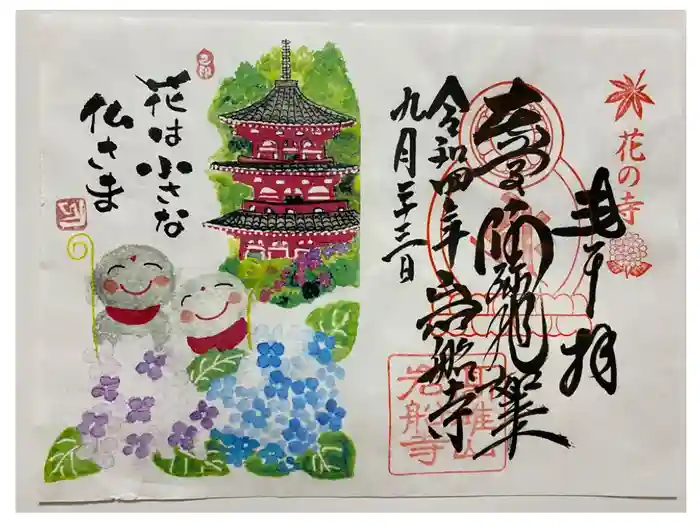 花の寺
奉拝
令和四年
九月二十三日
岩船寺
高雄山
岩船寺
花は小さな
仏さま